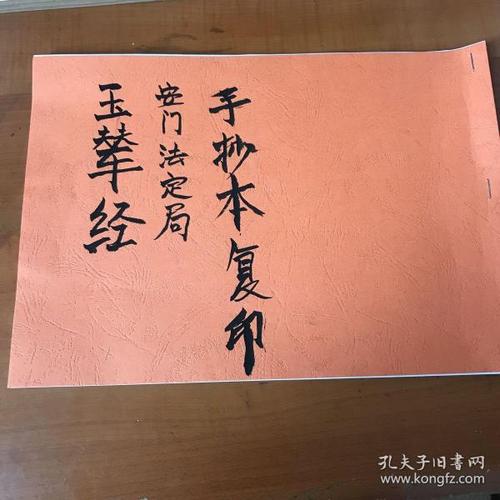 手抄本复印
安门法定局
玉辇经
孔夫子旧书网
www.kongfz.com